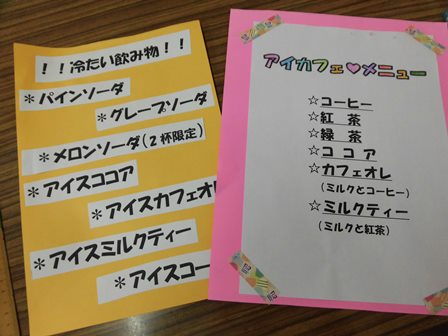 ！！冷たい飲み物！！
＊パインソーダ
＊グレープソーダ
＊メロンソーダ(２杯限定)
＊アイスココア
＊アイスカフェオレ
＊アイスミルクティー
＊アイスコー
アイカフェ♥メニュー
☆コーヒー
☆紅茶
☆緑茶
☆ココア
☆カフェオレ
(ミルクとコーヒー)
☆ミルクティー
(ミルクと紅茶)